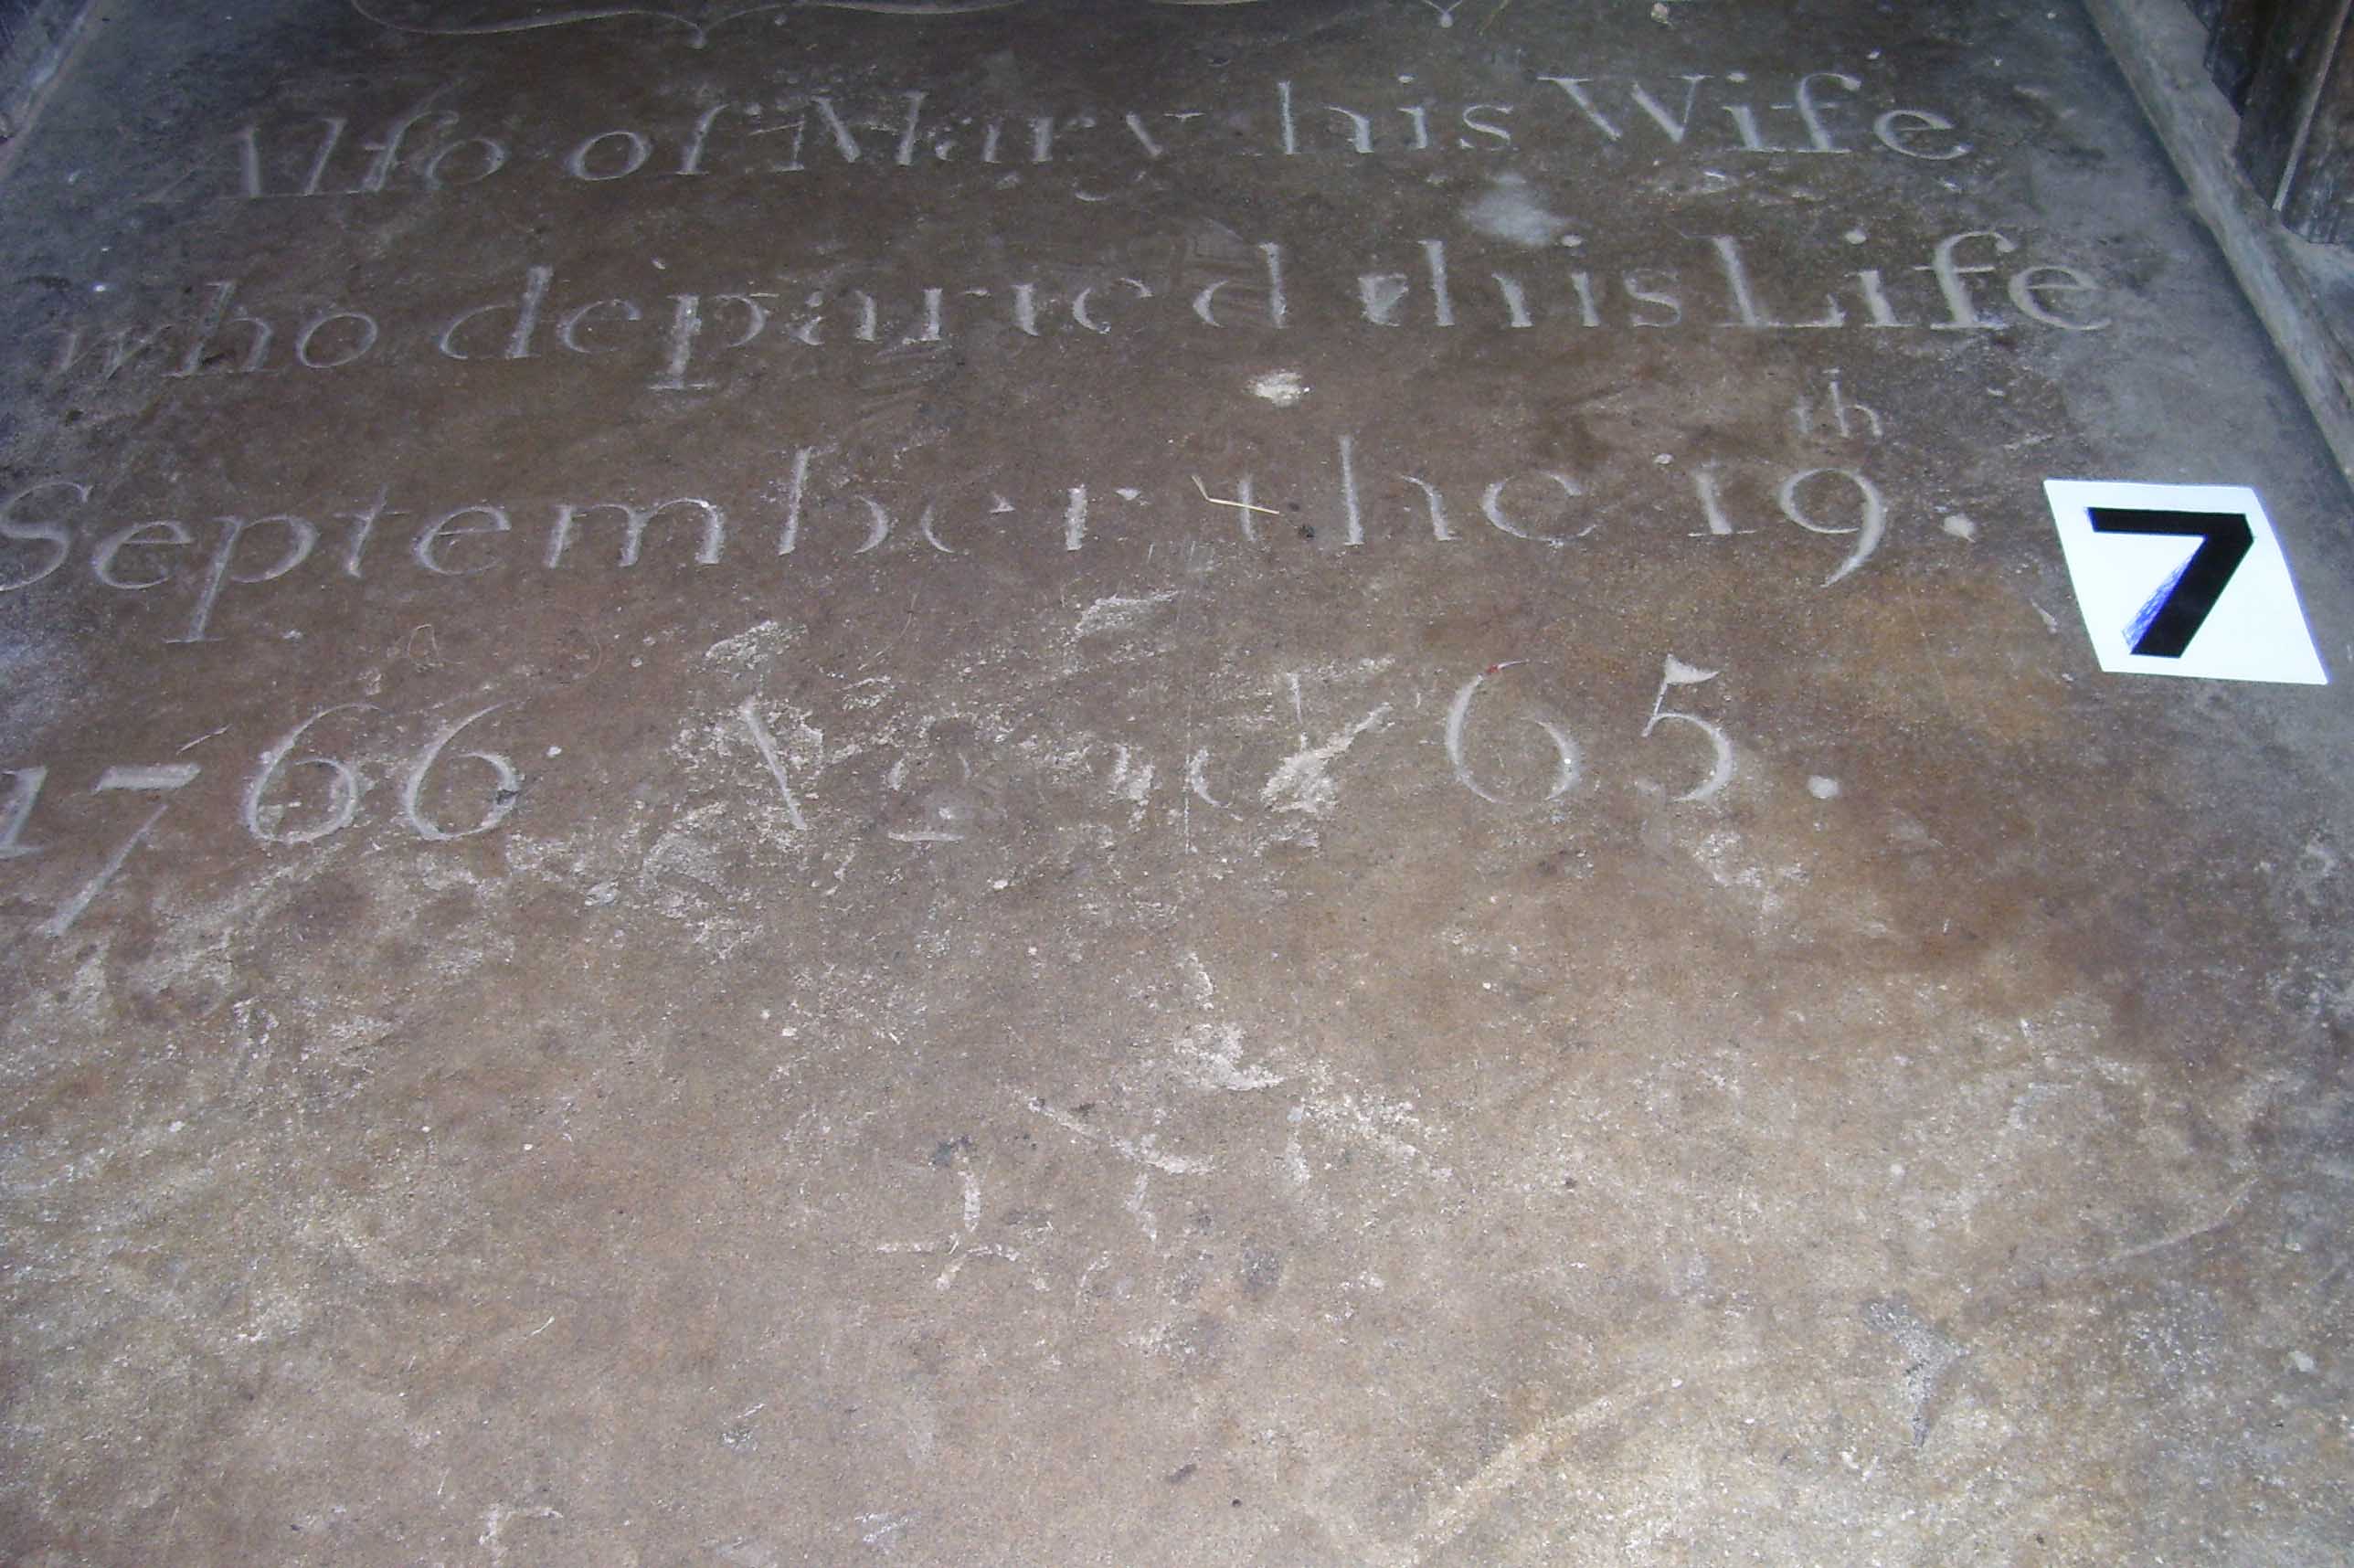 Alſo of Mary his Wife
who departed this Life
September the 19th.
1766 Aged 65.
7